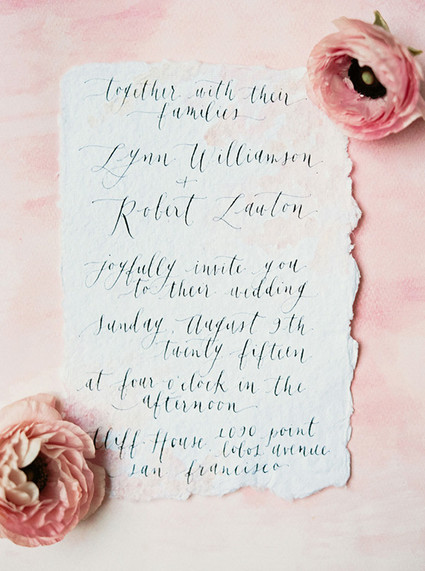 together with their
families
Lynn Williamson
+
Robert Lawton
joyfully invite you
to their wedding
sunday, August 9th
twenty fifteen
at four o'clock in the
afternoon
Cliff House 1090 point
lobos avenue
san francisco